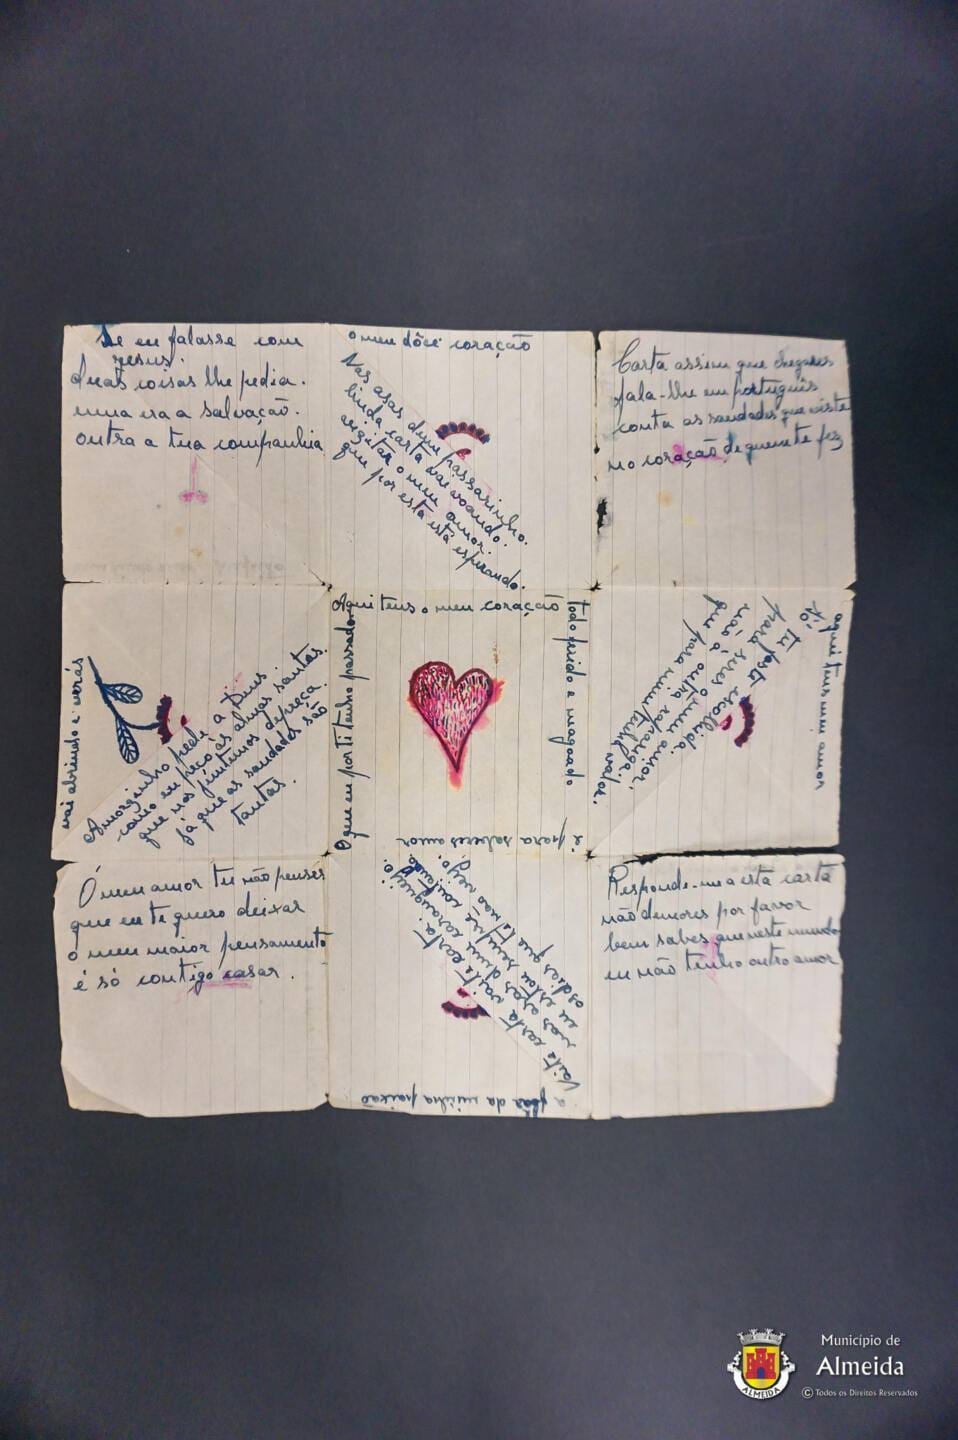 Se eu falasse com
Jesus.
duas coisas lhe pedia.
uma era a salvação.
outra a tua companhia
o meu dôce coração
Nas asas dum passarinho.
linda carta vai voando.
vizitar o meu amor.
que por esta está esperando.
Carta assim que chegares
fala-lhe em português
conta as saudades que existe
no coração de quem te fez
vai abrindo e verás
Amorzinho pede a Deus
como eu peço ás almas santas.
que nos juntimos depreça.
já que as saudades são
tantas.
Aqui tens o meu coração
todo ferido e magoado
é para saberes amor
O que eu por ti tenho passado
aqui tens meu amor
Só tu foste escolhida.
para seres o meu amor.
não á outra rapariga.
que para mim tenha valor.
Ó meu amor tu não penses
que eu te quero deixar
o meu maior pensamento
é só contigo casar.
Vaite carta vaite carta
nas asas dum caranguejo.
eu estou sempre contando
os dias que te não vejo.
a flor da minha paixão
Responde-me a esta carta
não demores por favor
bem sabes que neste mundo
eu não tenho outro amor
Município de
Almeida
© Todos os Direitos Reservados
ALMEIDA